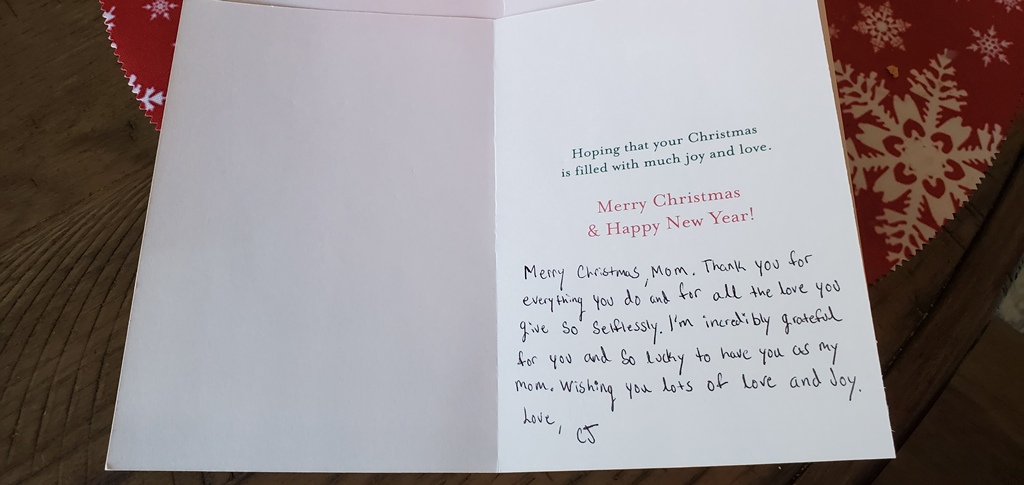 Hoping that your Christmas
is filled with much joy and love.
Merry Christmas
& Happy New Year!
Merry Christmas, Mom. Thank you for
everything you do and for all the love you
give so selflessly. I'm incredibly grateful
for you and so lucky to have you as my
mom. Wishing you lots of love and Joy.
Love,
CJ